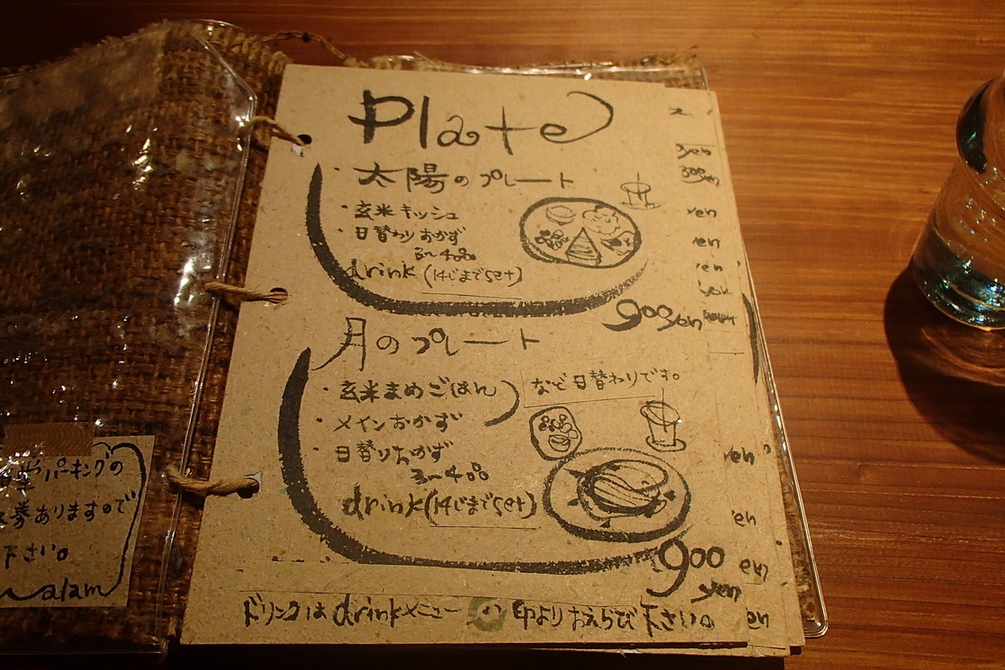 Plate
・太陽のプレート
・玄米キッシュ
・日替わりおかず
3〜4品
drink (14じまでset)
900yen
月のプレート
・玄米まめごはん
など日替わりです。
・メインおかず
・日替りおかず
3〜4品
drink (14じまでset)
900
yen
ドリンクはdrinkメニュー 印よりおえらび下さい。
パーキングの
券ありますので
下さい。
alam
yen
300yen
yen
yen
yen
yen
yen
yen
yen
yen